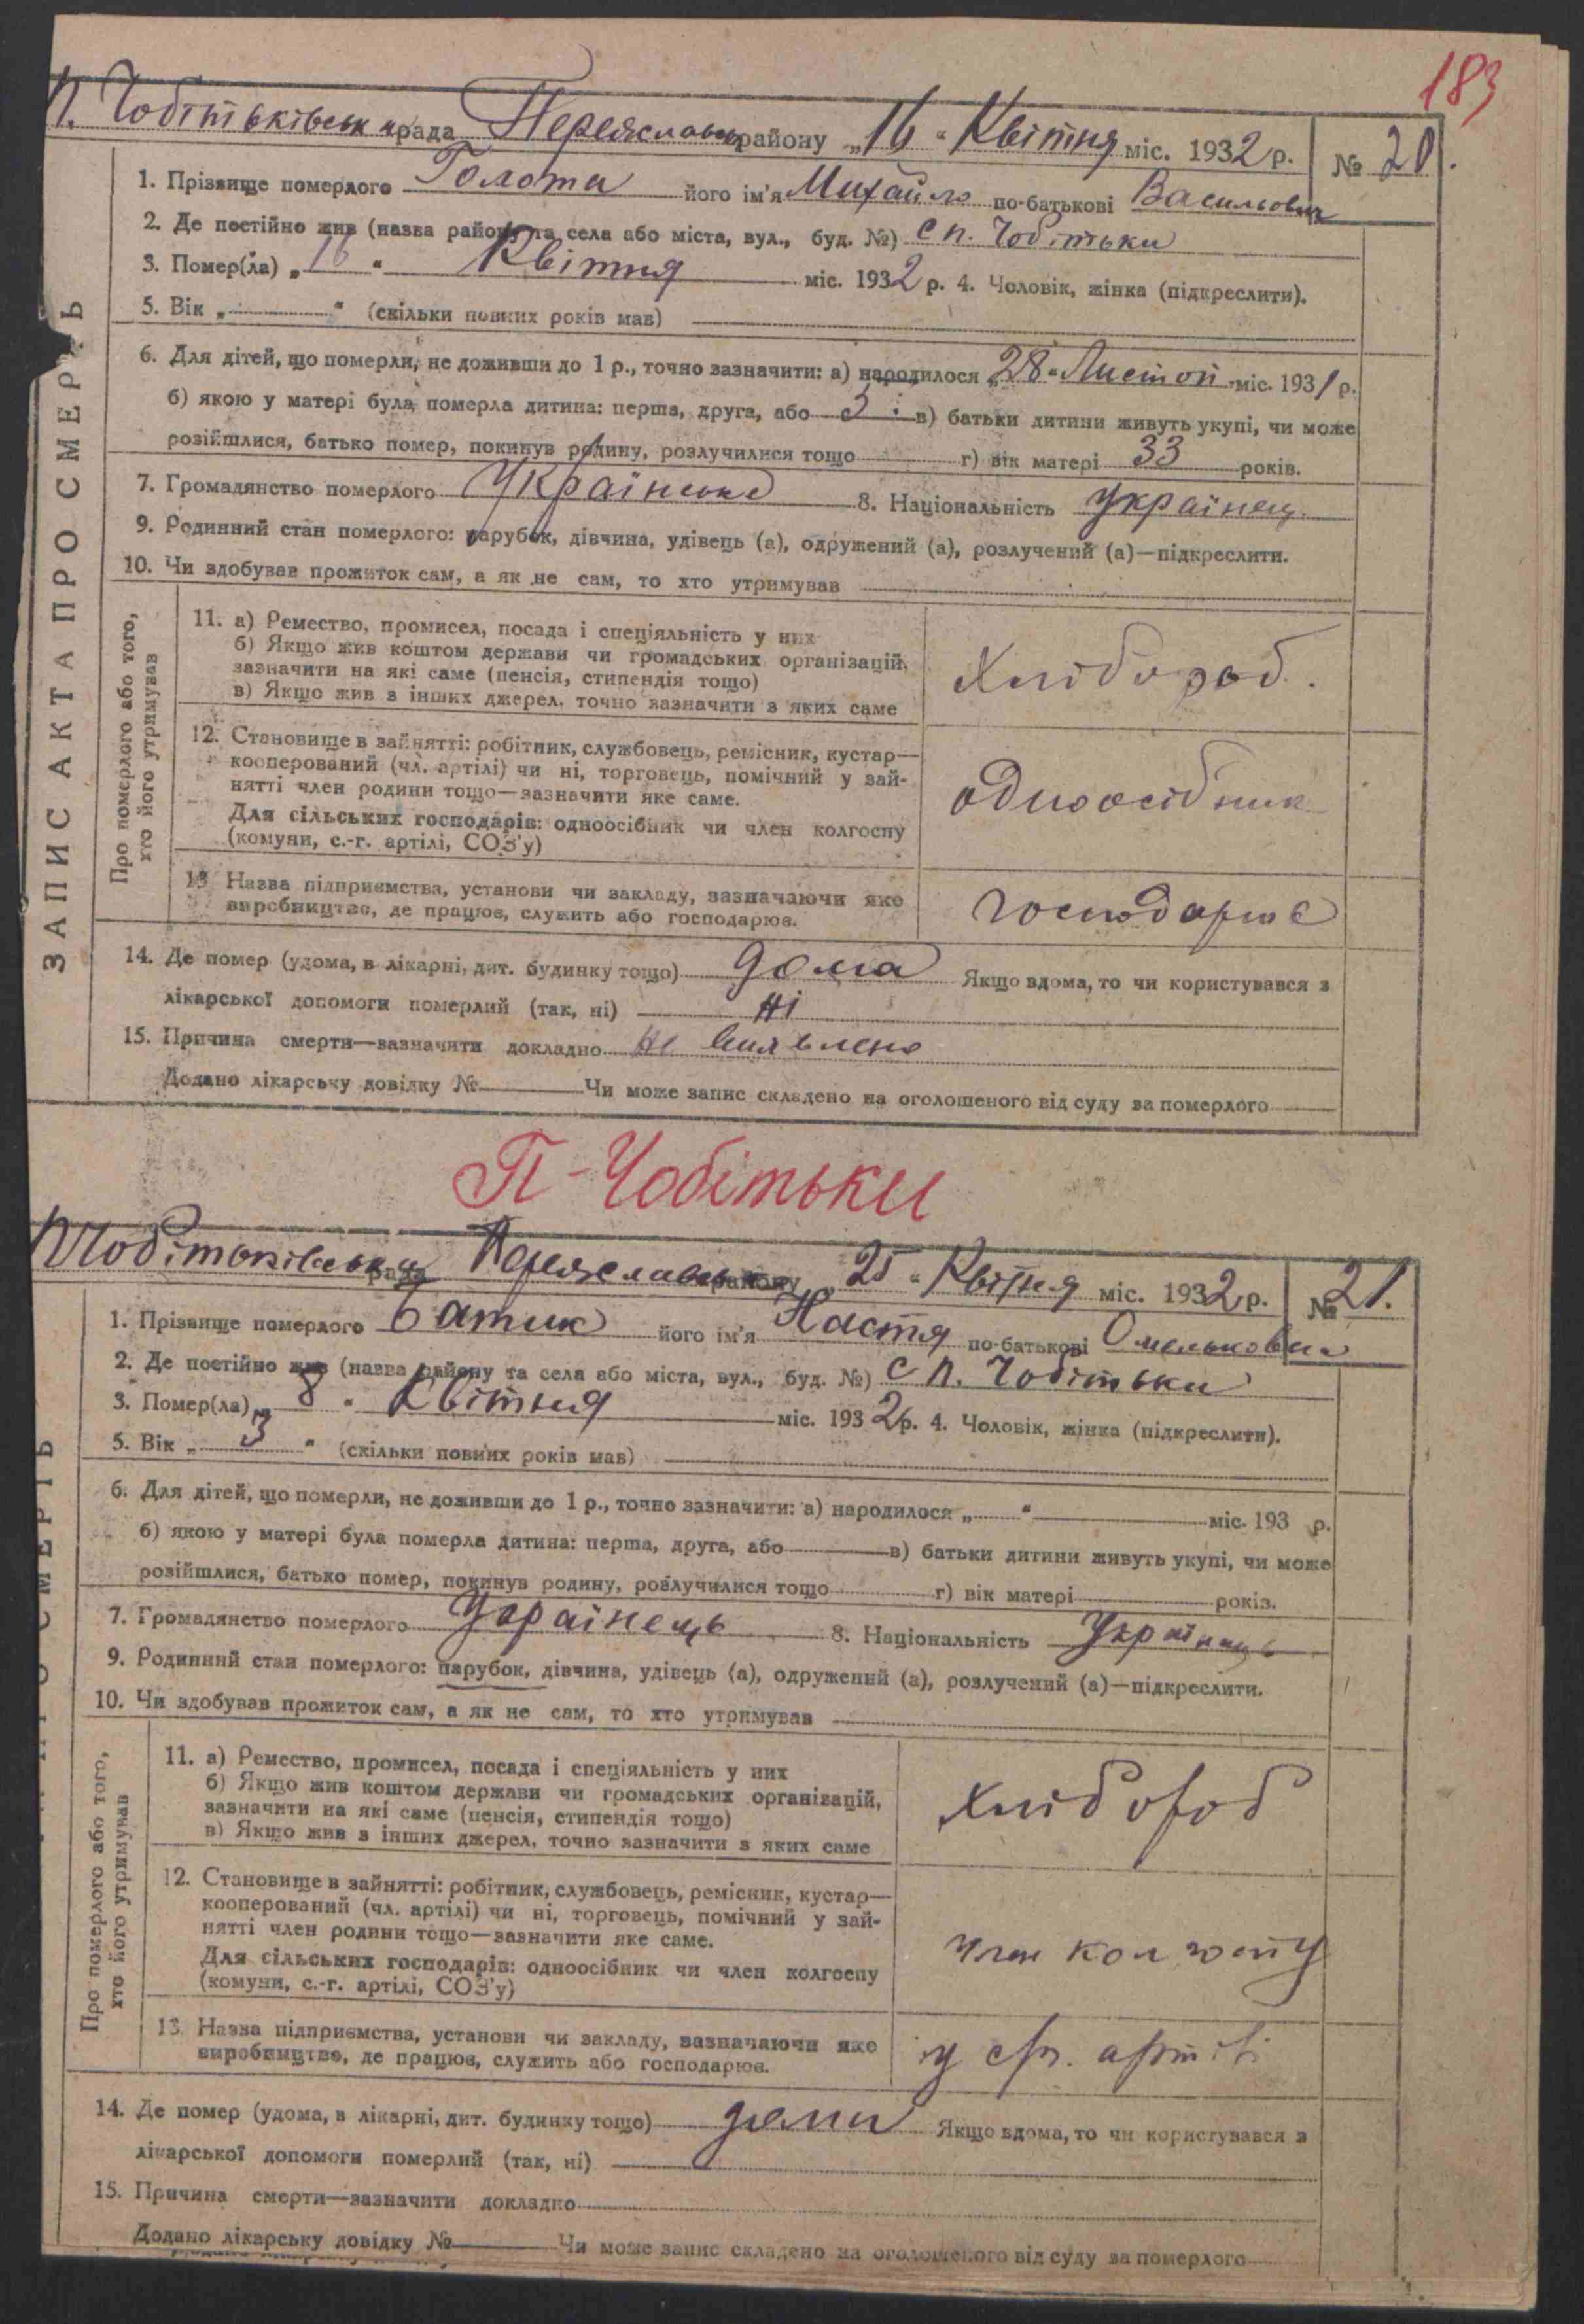 183
П. Чобітьківськ рада Переяславськ району „16“ Квітня міс. 1932 р. № 20.
ЗАПИС АКТА ПРО СМЕРТЬ
1. Прізвище померлого Голота його ім'я Михайло по-батькові Васильович
2. Де постійно жив (назва району та села або міста, вул., буд. №) с п. Чобітьки
3. Помер(ла) „16“ Квітня міс. 1932 р. 4. Чоловік, жінка (підкреслити).
5. Вік „ “ (скільки повних років мав)
6. Для дітей, що померли, не доживши до 1 р., точно зазначити: а) народилося „28“ Листоп міс. 1931 р.
б) якою у матері була померла дитина: перша, друга, або 3 в) батьки дитини живуть укупі, чи може
розійшлися, батько помер, покинув родину, розлучилися тощо г) вік матері 33 років.
7. Громадянство померлого Українське 8. Національність Українец
9. Родинний стан померлого: парубок, дівчина, удівець (а), одружений (а), розлучений (а)—підкреслити.
10. Чи здобував прожиток сам, а як не сам, то хто утримував
Про померлого або того,
хто його утримував
11. а) Ремество, промисел, посада і спеціяльність у них
б) Якщо жив коштом держави чи громадських організацій,
зазначити на які саме (пенсія, стипендія тощо)
в) Якщо жив з інших джерел, точно зазначити з яких саме
Хлібороб.
12. Становище в зайнятті: робітник, службовець, ремісник, кустар—
кооперований (чл. артілі) чи ні, торговець, помічний у зай-
нятті член родини тощо—зазначити яке саме.
Для сільських господарів: одноосібник чи член колгоспу
(комуни, с.-г. артілі, СОЗ'у)
одноосібник
13. Назва підприємства, установи чи закладу, зазначаючи яке
виробництво, де працює, служить або господарює.
господарює
14. Де помер (удома, в лікарні, дит. будинку тощо) дома Якщо вдома, то чи користувався з
лікарської допомоги померлий (так, ні) ні
15. Причина смерти—зазначити докладно не виявлено
Додано лікарську довідку № Чи може запис складено на оголошеного від суду за померлого
П-Чобітьки
П Чобітьківська рада Переяславськ району „25“ Квітня міс. 1932 р. № 21.
1. Прізвище померлого Батик його ім'я Настя по-батькові Омельковна
2. Де постійно жив (назва району та села або міста, вул., буд. №) с п. Чобітьки
3. Помер(ла) „8“ Квітня міс. 1932 р. 4. Чоловік, жінка (підкреслити).
5. Вік „3“ (скільки повних років мав)
6. Для дітей, що померли, не доживши до 1 р., точно зазначити: а) народилося „ “ міс. 193 р.
б) якою у матері була померла дитина: перша, друга, або в) батьки дитини живуть укупі, чи може
розійшлися, батько помер, покинув родину, розлучилися тощо г) вік матері років.
7. Громадянство померлого Українець 8. Національність Українець
9. Родинний стан померлого: парубок, дівчина, удівець (а), одружений (а), розлучений (а)—підкреслити.
10. Чи здобував прожиток сам, а як не сам, то хто утримував
Про померлого або того,
хто його утримував
11. а) Ремество, промисел, посада і спеціяльність у них
б) Якщо жив коштом держави чи громадських організацій,
зазначити на які саме (пенсія, стипендія тощо)
в) Якщо жив з інших джерел, точно зазначити з яких саме
Хлібороб
12. Становище в зайнятті: робітник, службовець, ремісник, кустар—
кооперований (чл. артілі) чи ні, торговець, помічний у зай-
нятті член родини тощо—зазначити яке саме.
Для сільських господарів: одноосібник чи член колгоспу
(комуни, с.-г. артілі, СОЗ'у)
член колгоспу
13. Назва підприємства, установи чи закладу, зазначаючи яке
виробництво, де працює, служить або господарює.
у с/г. артілі
14. Де помер (удома, в лікарні, дит. будинку тощо) дома Якщо вдома, то чи користувався з
лікарської допомоги померлий (так, ні)
15. Причина смерти—зазначити докладно
Додано лікарську довідку № Чи може запис складено на оголошеного від суду за померлого